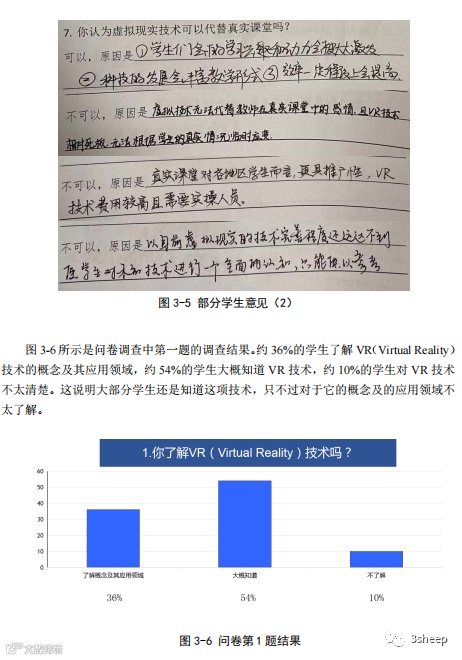 7. 你认为虚拟现实技术可以代替真实课堂吗？
可以，原因是①学生们会的学习兴趣和动力会被大激发
② 科技的发展会丰富教学形式③效率一定程度上会提高
不可以，原因是 虚拟技术无法代替教师在真实课堂中的感情，且VR技术
相对死板，无法根据学生的真实情况临时应变.
不可以，原因是 真实课堂对各地区学生而言，更具推广性，VR
技术费用较高且需要实操人员。
不可以，原因是 以目前虚拟现实的技术完善程度还远达不到
使学生对未知技术进行一个全面的认知，只能加以参考
图 3-5 部分学生意见（2）
图 3-6 所示是问卷调查中第一题的调查结果。约 36%的学生了解 VR（Virtual Reality）
技术的概念及其应用领域，约 54%的学生大概知道 VR 技术，约 10%的学生对 VR 技术
不太清楚。这说明大部分学生还是知道这项技术，只不过对于它的概念及的应用领域不
太了解。
1.你了解VR（Virtual Reality）技术吗？
60
50
40
30
20
10
0
了解概念及其应用领域 大概知道 不了解
36% 54% 10%
图 3-6 问卷第 1 题结果
3sheep